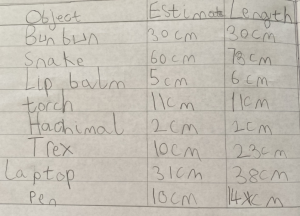 Object Estimate Length
Bunbun 30cm 30cm
Snake 60cm 78cm
Lip balm 5cm 6cm
torch 11cm 11cm
Hachimal 2cm 2cm
Trex 10cm 23cm
Laptop 31cm 38cm
Pen 10cm 14cm